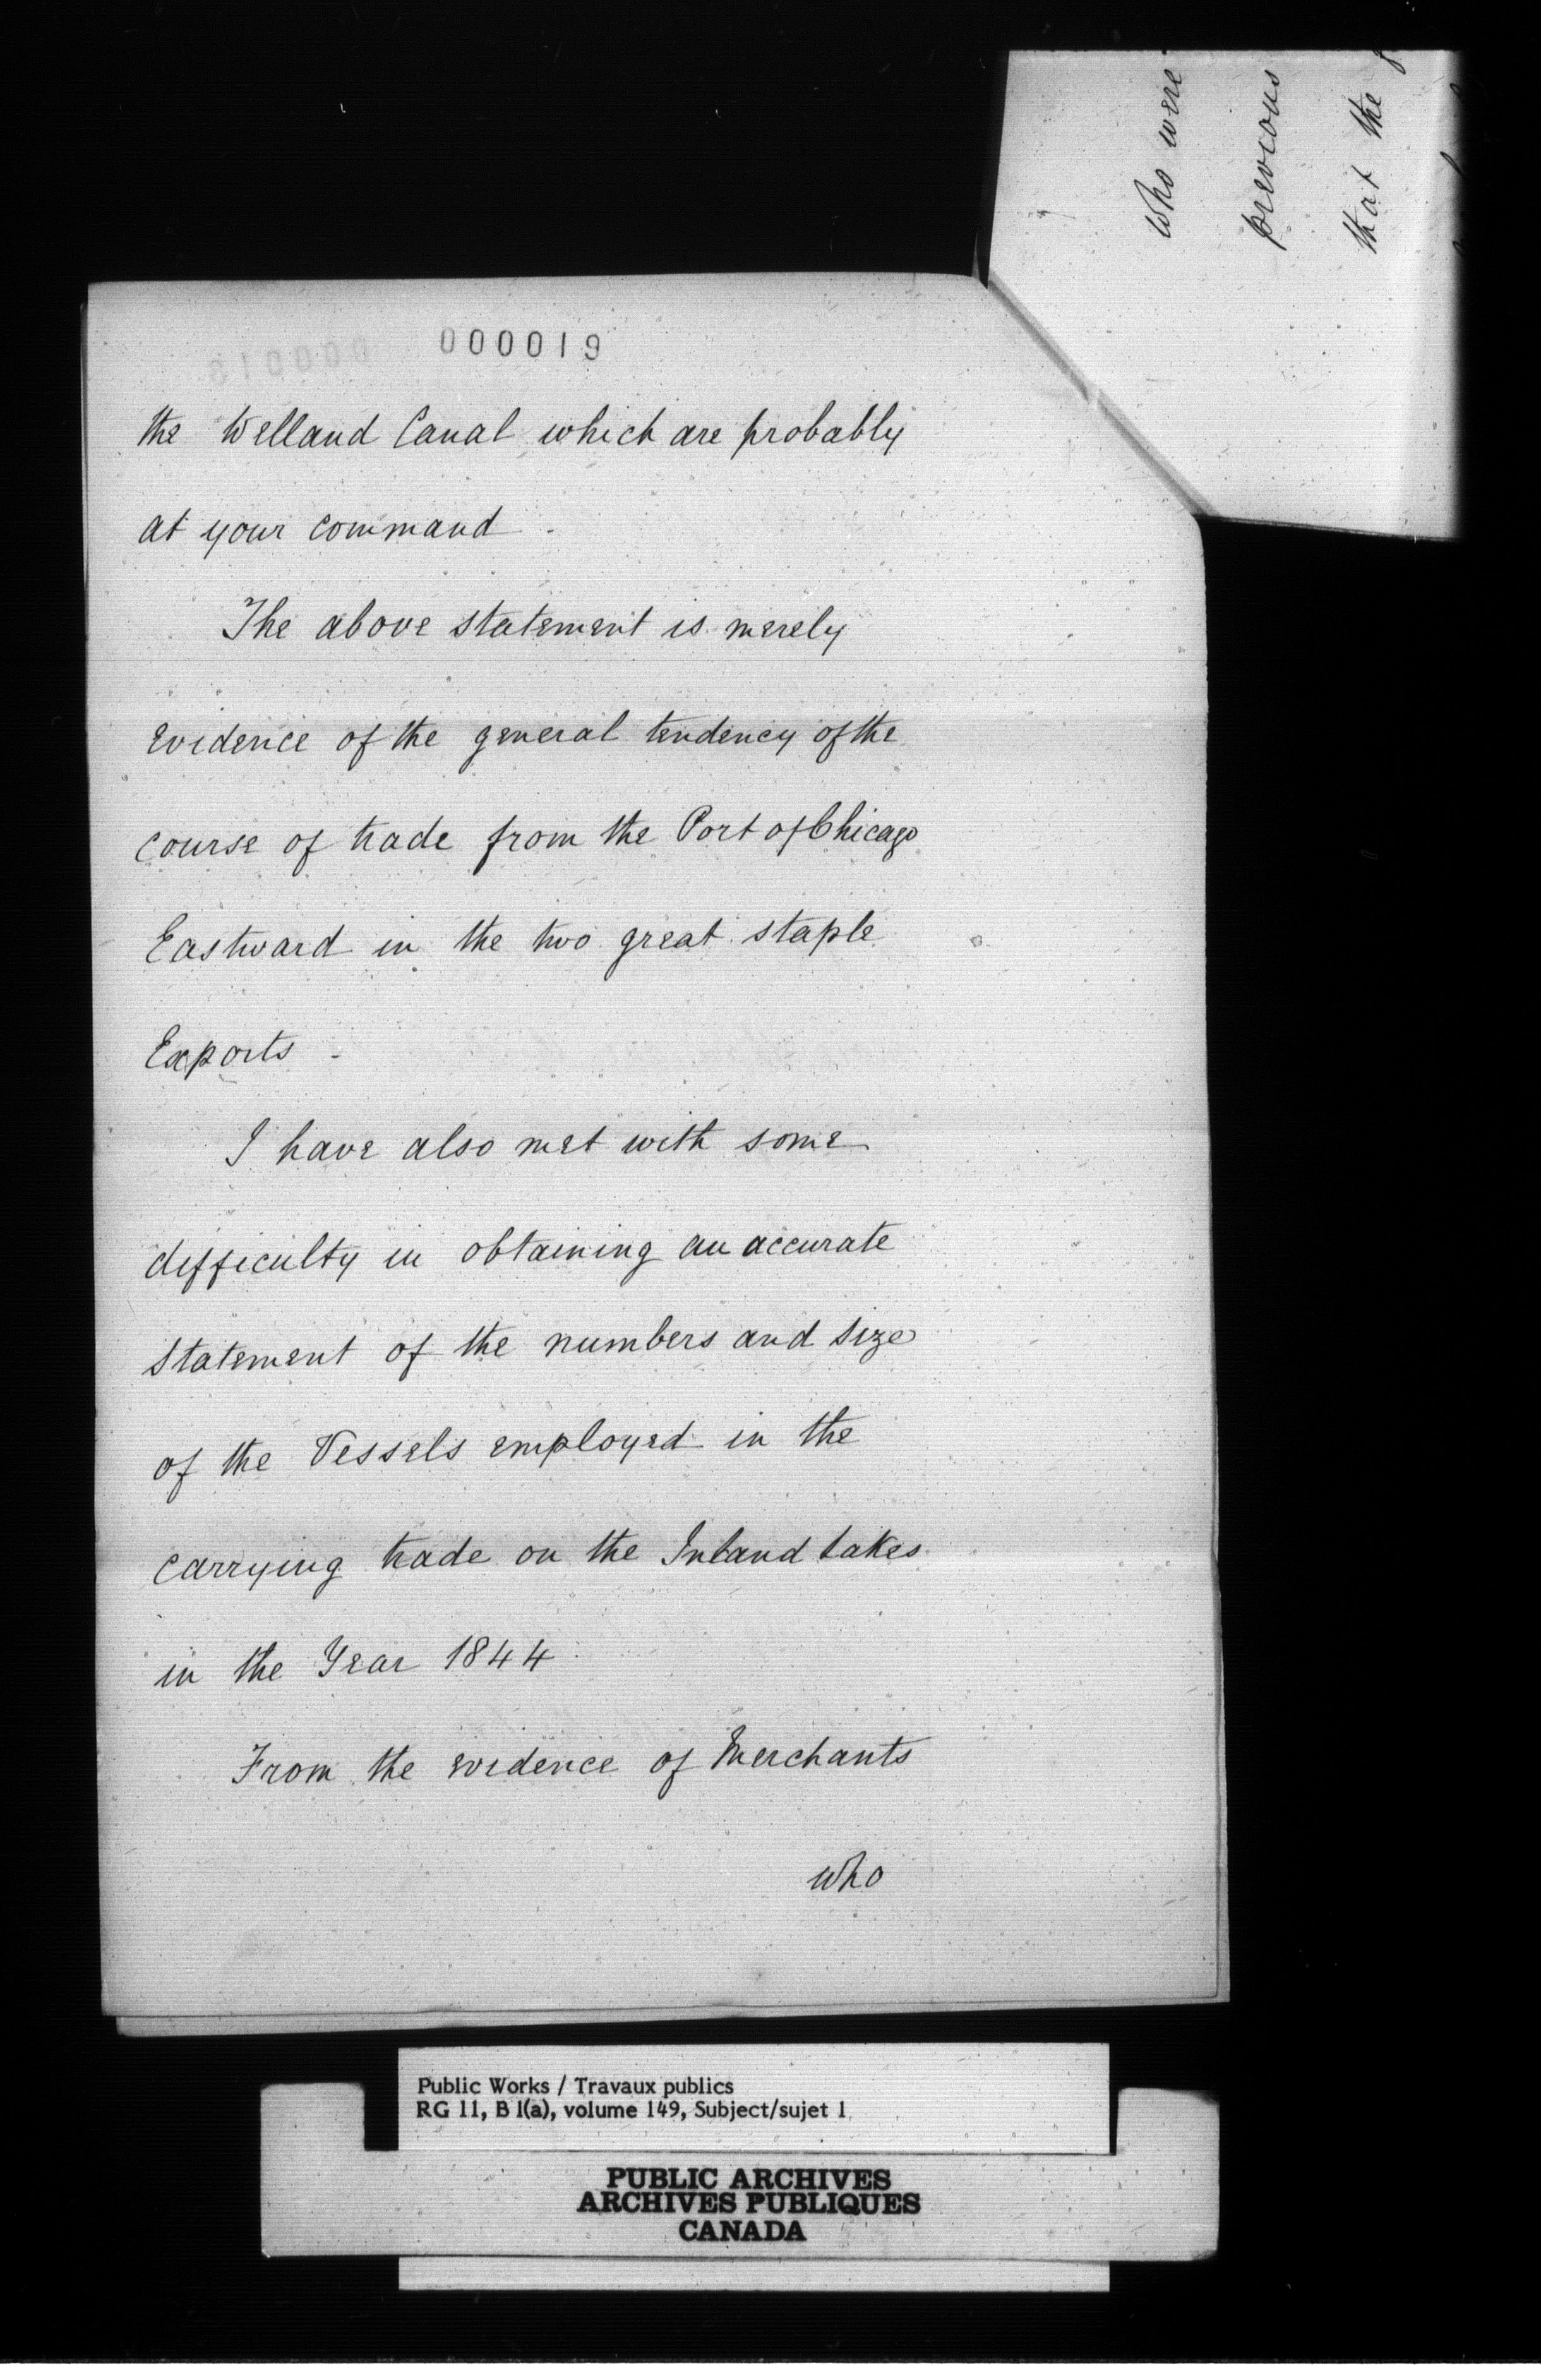 who were
previous
that the
000019
the Welland Canal which are probably
at your command -
The above statement is merely
evidence of the general tendency of the
course of trade from the Port of Chicago
Eastward in the two great staple
Exports -
I have also met with some
difficulty in obtaining an accurate
statement of the numbers and size
of the Vessels employed in the
carrying trade on the Inland Lakes
in the Year 1844
From the evidence of Merchants
who
Public Works / Travaux publics
RG 11, B 1(a), volume 149, Subject/sujet 1
PUBLIC ARCHIVES
ARCHIVES PUBLIQUES
CANADA